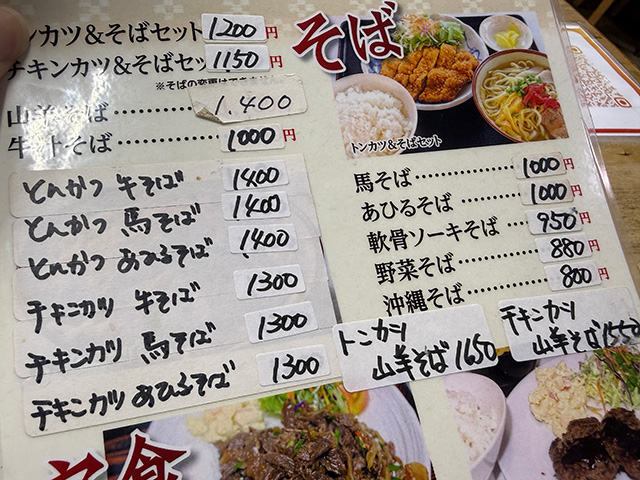 ンカツ&そばセット 1200円
チキンカツ&そばセッ 1150円
※そばの変更はできませ
山羊そば…………… 1,400
牛汁そば…………… 1000円
とんかつ 牛そば 1400
とんかつ 馬そば 1400
とんかつ あひるそば 1400
チキンカツ 牛そば 1300
チキンカツ 馬そば 1300
チキンカツ あひるそば 1300
そば
トンカツ&そばセット
馬そば…………… 1000円
あひるそば…………… 1000円
軟骨ソーキそば…… 950円
野菜そば…………… 880円
沖縄そば…………… 800円
トンカツ
山羊そば 1650
チキンカツ
山羊そば 1550
定食